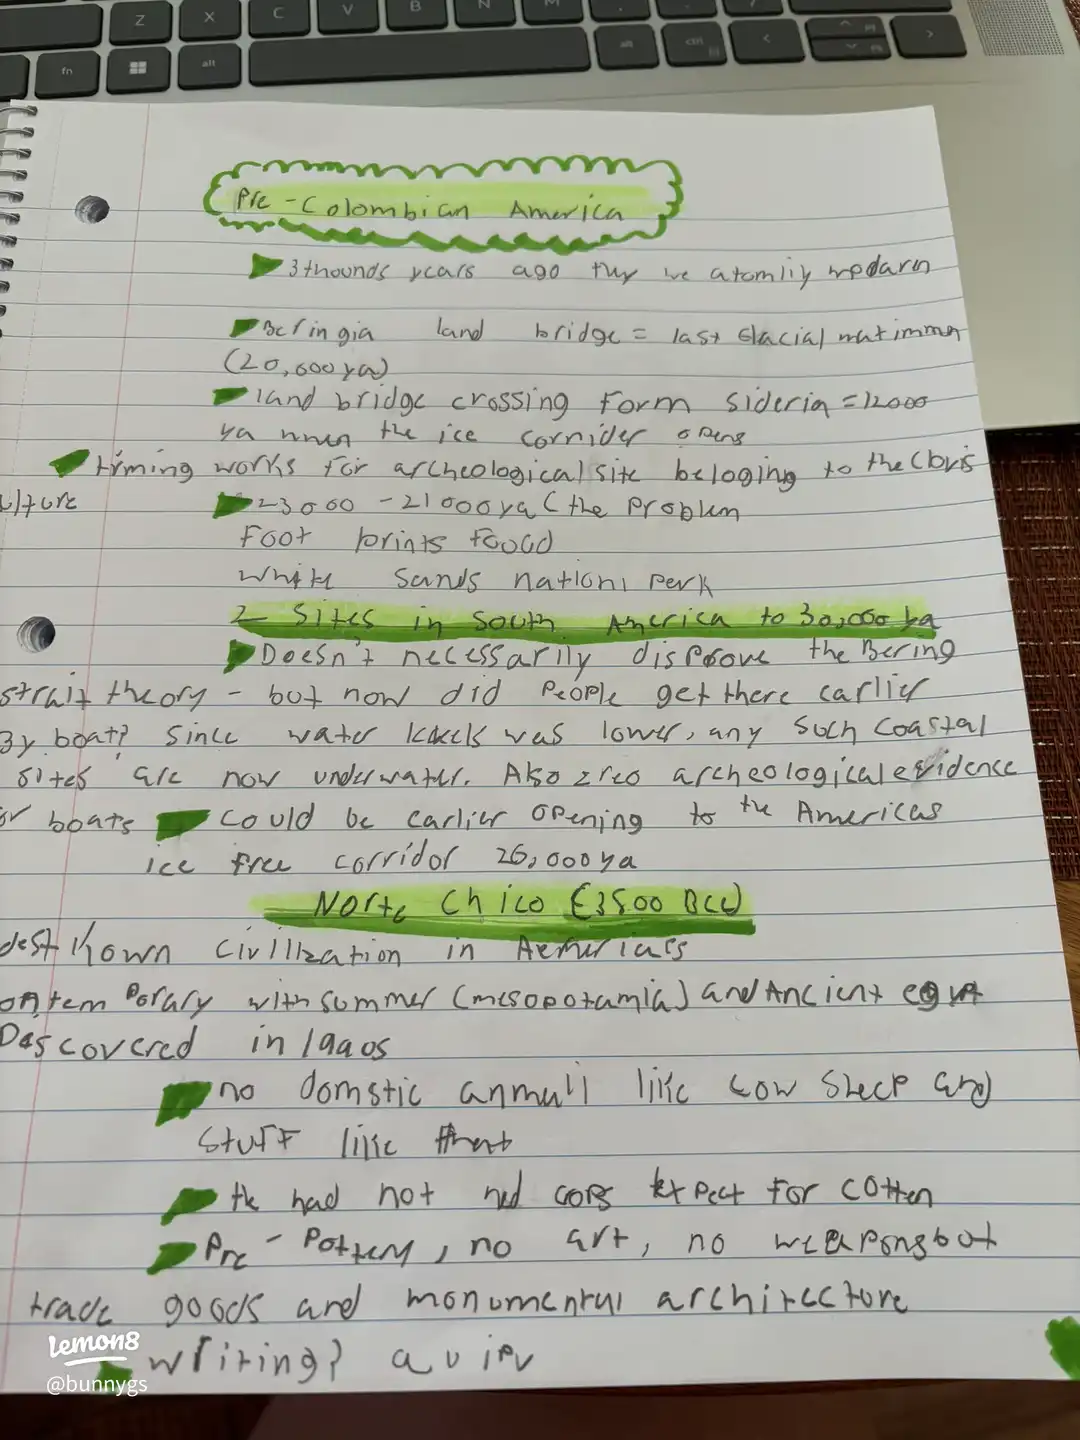 Z X C V B N M
fn alt alt ctrl
Pre-Colombian America
3 thounds years ago they we atomliy modarn
Beringia land bridge = last Glacial matimmum
(20,000 ya)
land bridge crossing form sideria = 12000
ya when the ice corrnider opens
timing works for archeological site beloging to the Clovis
ulture
23000 - 21000 ya (the problem
Foot prints foood
White Sands nationl perk
2 Sites in South America to 30,000 ya
Doesn't necessarily disprove the Bering
strait theory - but now did people get there earlier
By boat? Since water levels was lower, any such coastal
sites are now underwater. Also zreo archeological evidence
or boats Could be earlier opening to the Americas
ice free corridor 26,000 ya
Norte Chico (3500 BCE)
dest known civillzation in
ontemporary with summer (mesopotamia) and Ancient
Descovered in 1990s
no domstic like cow sheep and
stuff like that
had not ned cops expect for cotten
Pre-Pottery, no art, no weapons but
trade goods and monumentul architecture
writing?
lemon8
@bunnygs